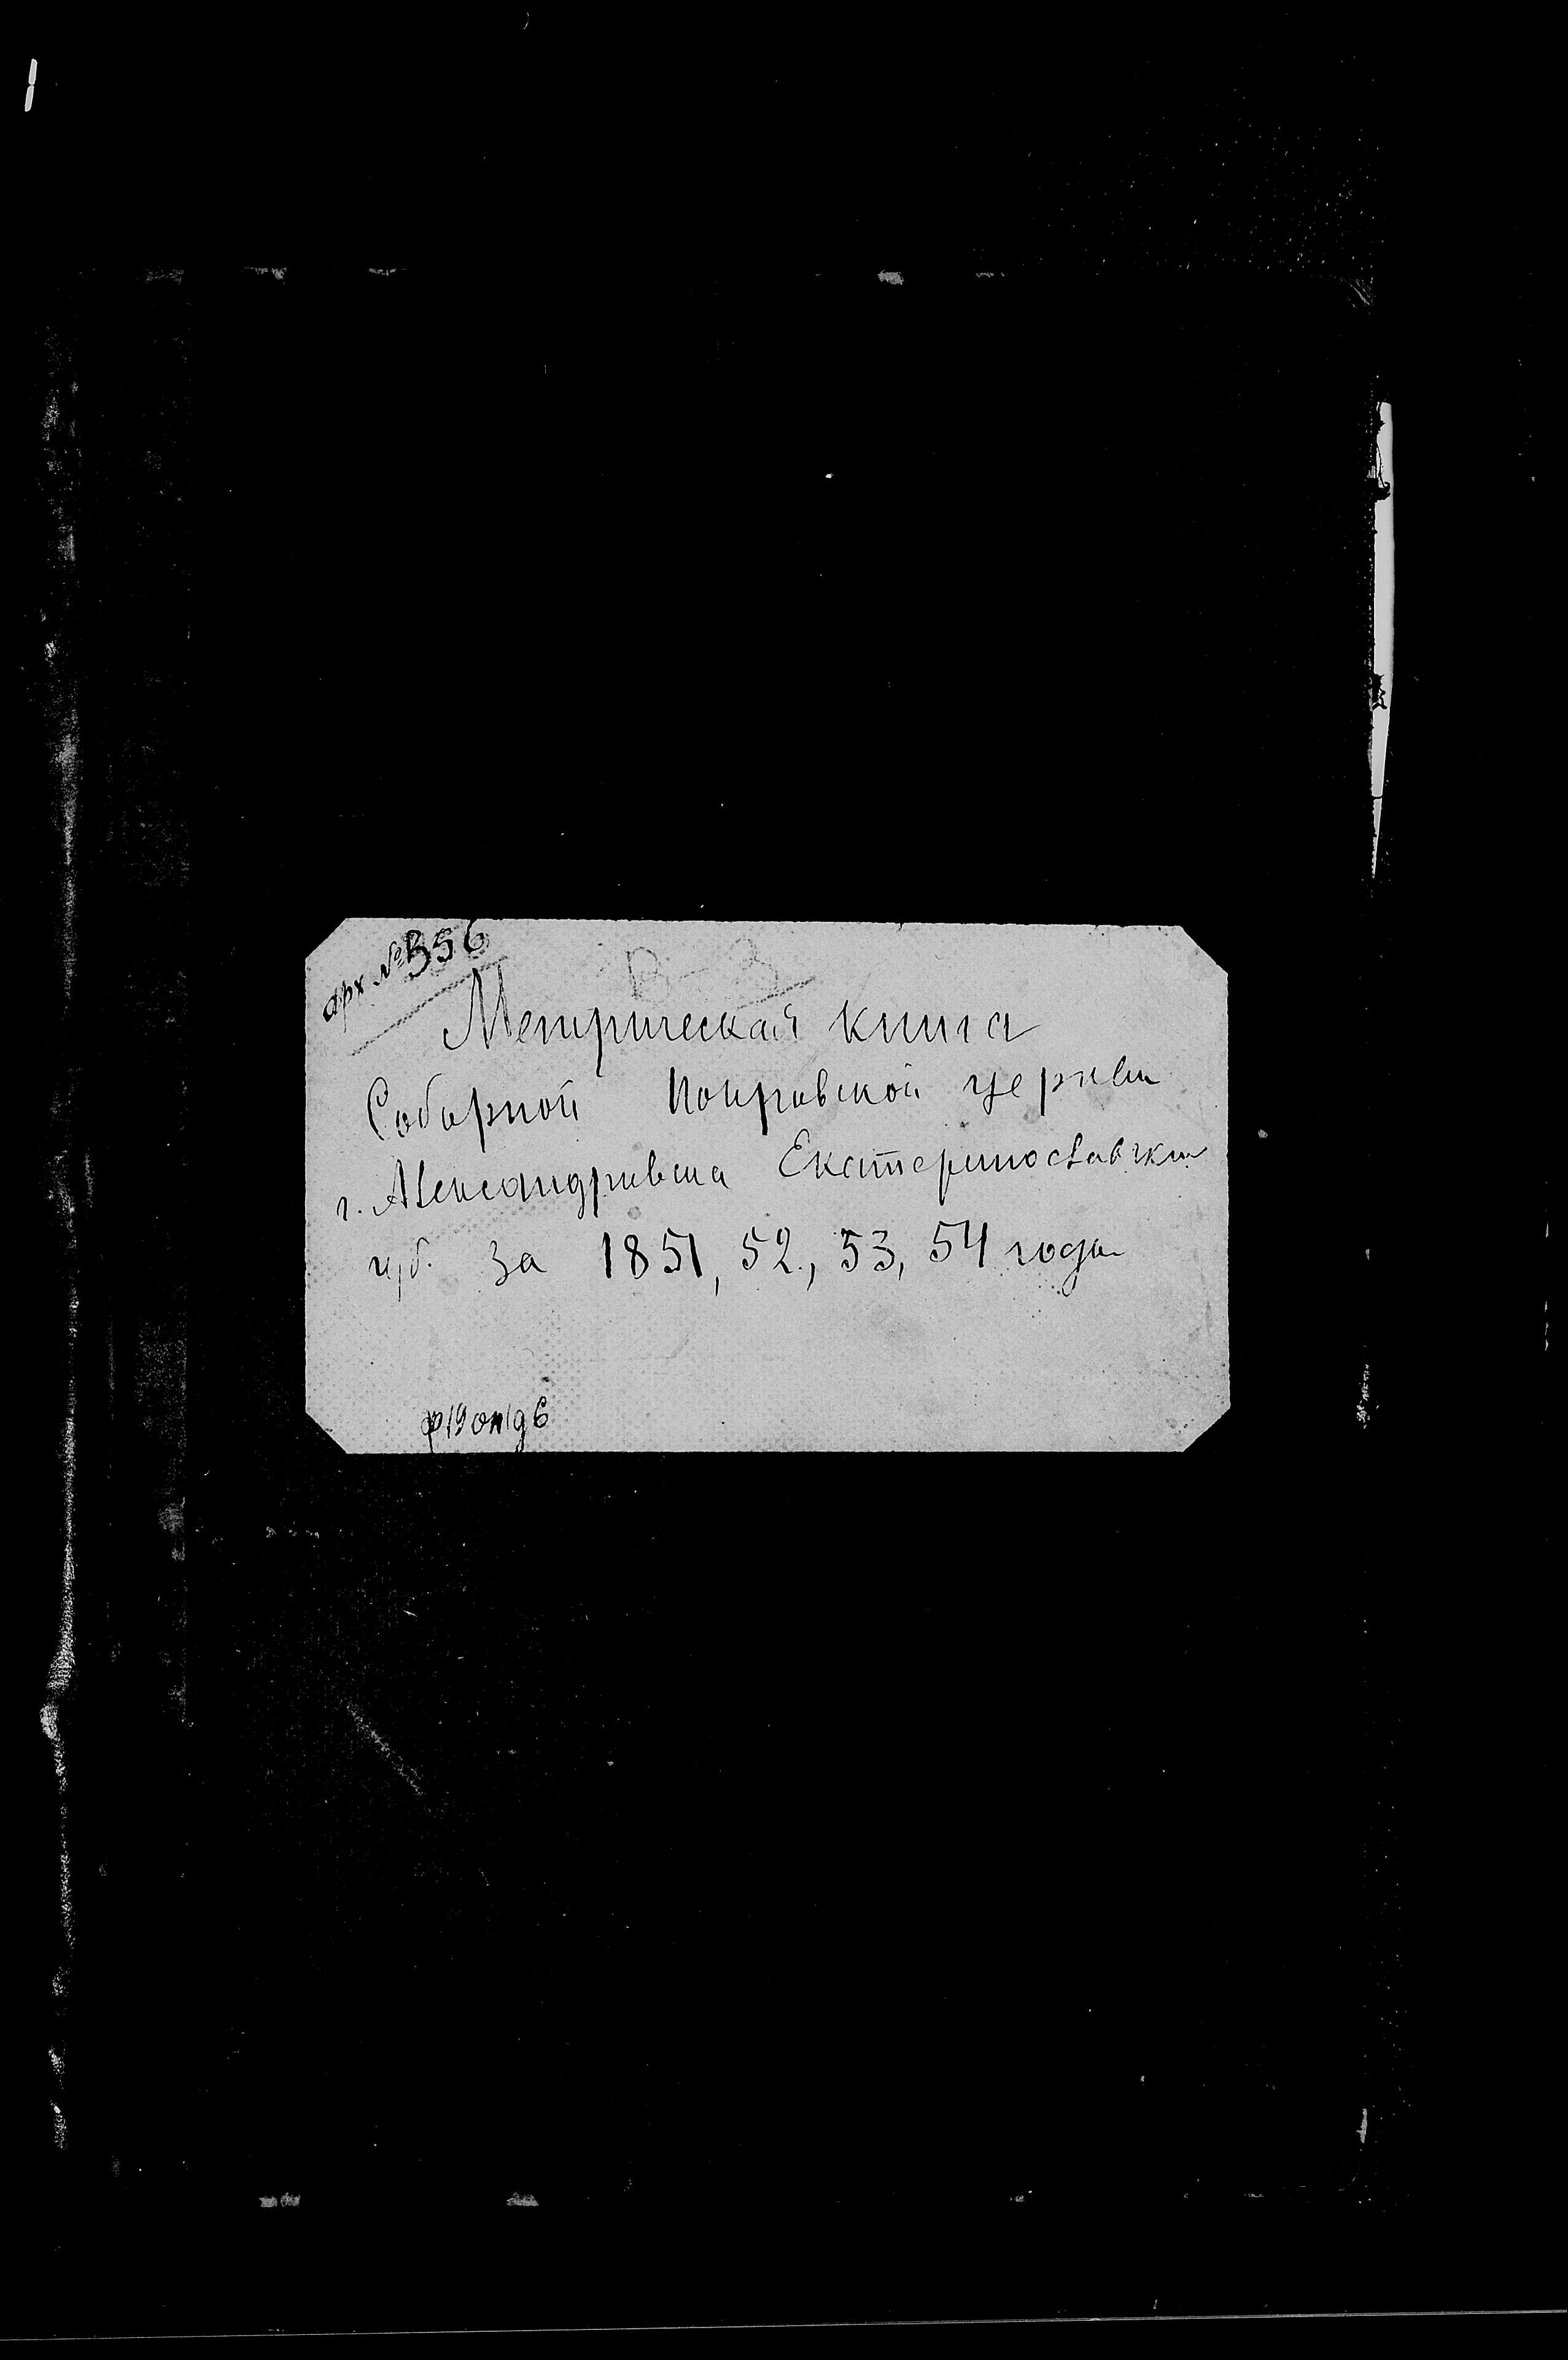 арх №356
В-3
Метрическая книга
Соборной Покровской церкви
г. Александровска Екатеринославской
губ. за 1851, 52, 53, 54 года
ф19 оп1 д6